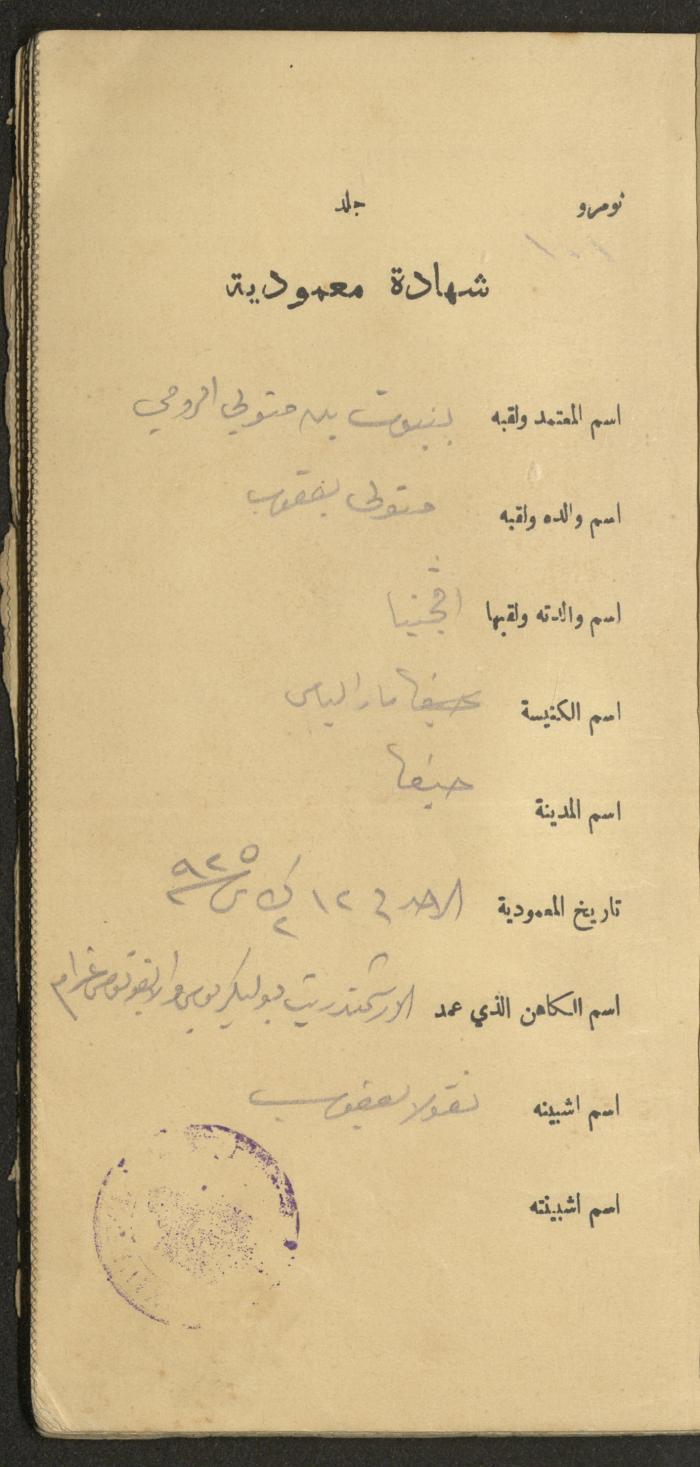 نومرو جلد
١٠١
شهادة معمودية
اسم المعتمد ولقبه بنيوت بن متولي الرومي
اسم والده ولقبه متولي يعقوب
اسم والدته ولقبها افجينيا
اسم الكنيسة حيفا مار الياس
اسم المدينة حيفا
تاريخ المعمودية الاحد في ١٢ ك٢ س ٩٢٥
اسم الكاهن الذي عمد الارشمندريت بوليكربوس
اسم اشبينه نقولا يعقوب
اسم اشبينته